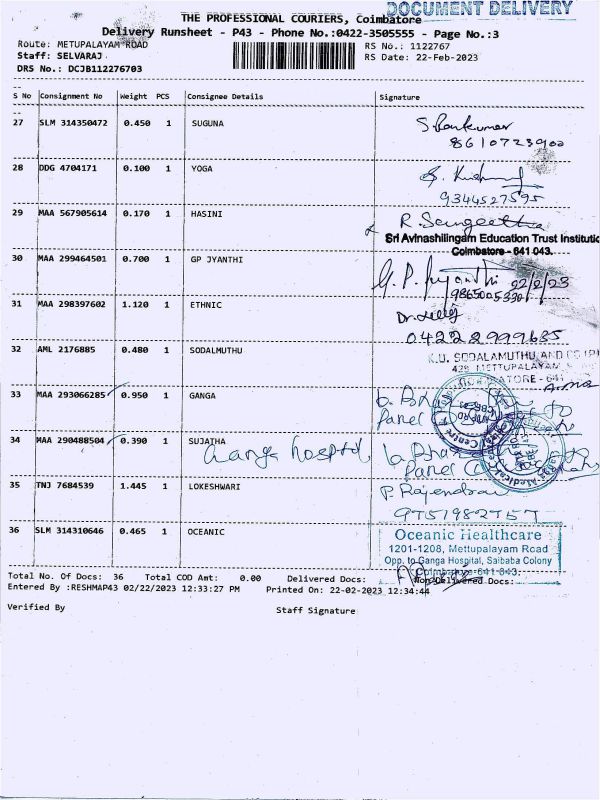 DOCUMENT DELIVERY
THE PROFESSIONAL COURIERS, Coimbatore
Delivery Runsheet - P43 - Phone No.:0422-3505555 - Page No.:3
Route: METUPALAYAM ROAD
RS No.: 1122767
Staff: SELVARAJ
RS Date: 22-Feb-2023
DRS No.: DCJB112276703
S No Consignment No Weight PCS Consignee Details Signature
27 SLM 314350472 0.450 1 SUGUNA
8610723900
28 DDG 4704171 0.100 1 YOGA
9344527595
29 MAA 567905614 0.170 1 HASINI R. Sangeetha
Sri Avinashilingam Education Trust Institutio
Coimbatore - 641 043.
30 MAA 299464501 0.700 1 GP JYANTHI G. P. Jyanthi 22/2/23
9865005390
31 MAA 298397602 1.120 1 ETHNIC
04222999635
32 AML 2176885 0.480 1 SODALMUTHU
K.U. SODALAMUTHU AND CO (P)
428 METTUPALAYAM
33 MAA 293066285 0.950 1 GANGA
34 MAA 290488504 0.390 1 SUJATHA Ganga hospital
35 TNJ 7684539 1.445 1 LOKESHWARI P. Rajendran
9751982757
36 SLM 314310646 0.465 1 OCEANIC
Oceanic Healthcare
1201-1208, Mettupalayam Road
Opp. to Ganga Hospital, Saibaba Colony
Coimbatore-641 043.
Total No. Of Docs: 36 Total COD Amt: 0.00 Delivered Docs: Non Delivered Docs:
Entered By :RESHMAP43 02/22/2023 12:33:27 PM Printed On: 22-02-2023 12:34:44
Verified By Staff Signature